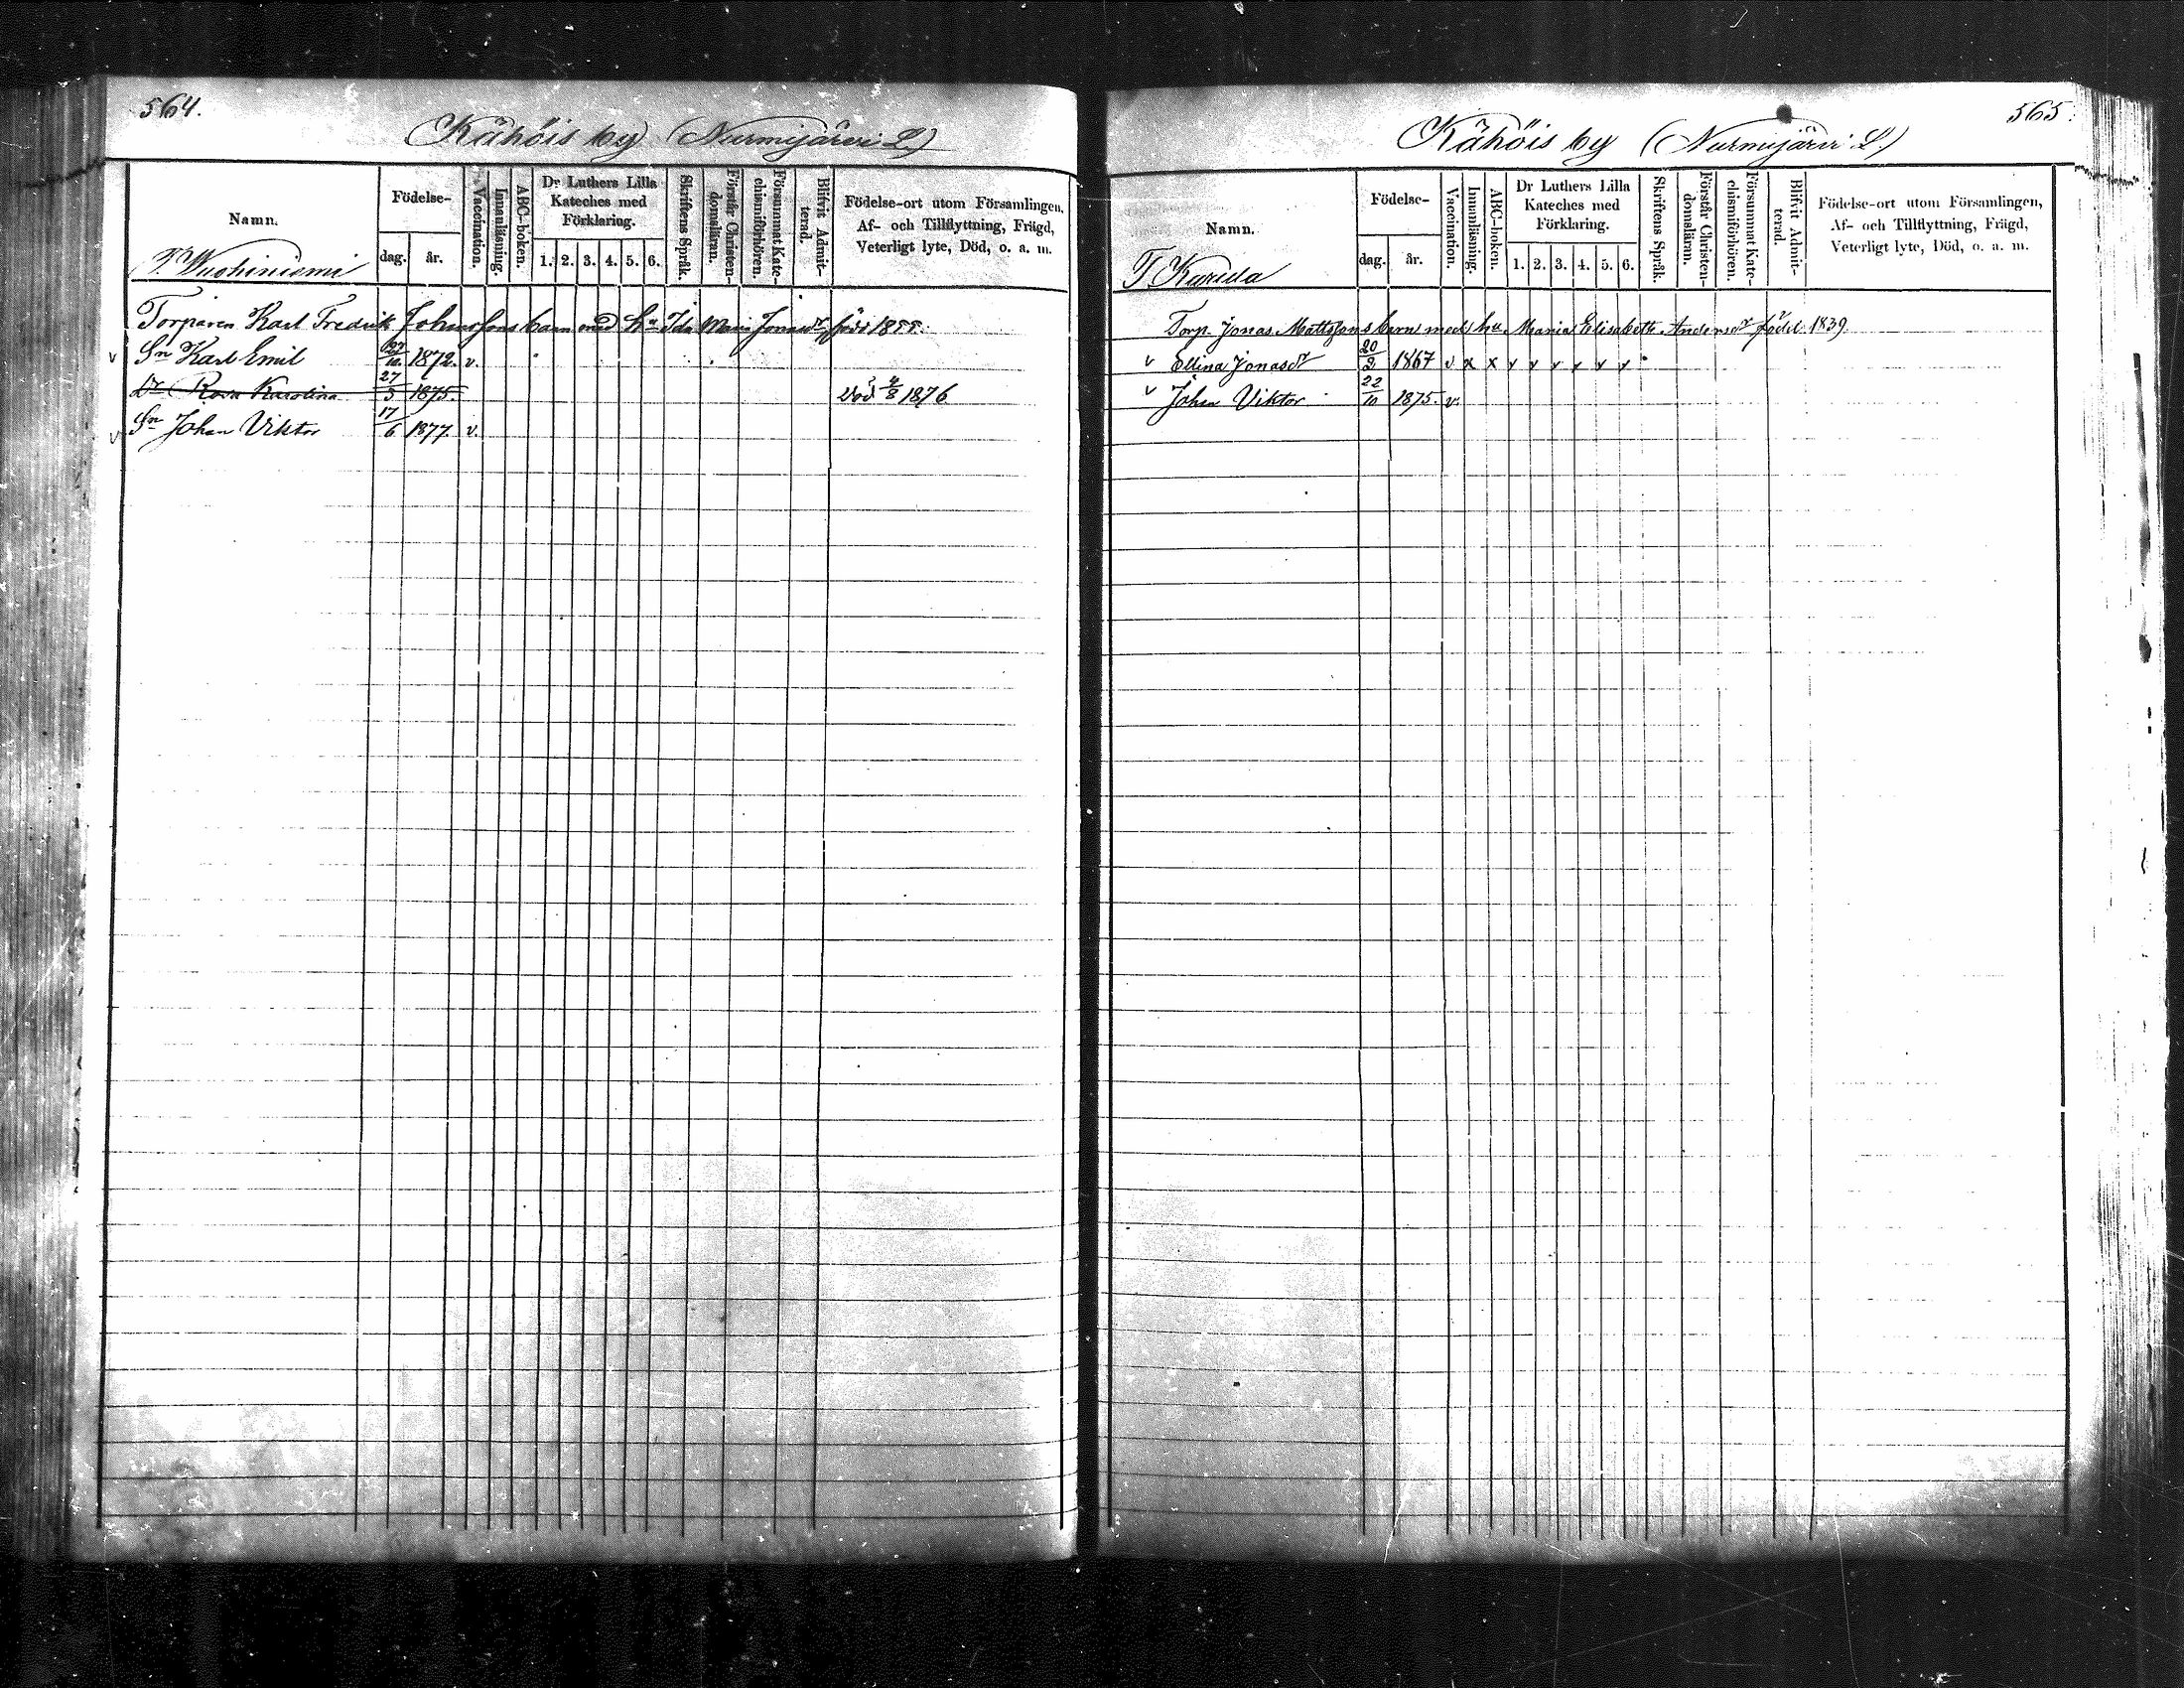 564.
Kähöis by (Nurmijärvi L.)
Namn.
Födelse-
dag.
år.
Vaccination.
Innanläsning.
ABC-boken.
Dr Luthers Lilla
Kateches med
Förklaring.
1. 2. 3. 4. 5. 6.
Skriftens Språk.
Förstår Christen-
domslärnn.
Försummat Kate-
chismiförhören.
Blifvit Admit-
terad.
Födelse-ort utom Församlingen,
Af- och Tillflyttning, Frägd,
Veterligt lyte, Död, o. a. m.
T. Wuohiniemi
Torparen Karl Fredrik Johnssons barn med hu Ida Maria Jonasdr född 1855.
v Sn Karl Emil 27/10 1872. v.
Dr Rosa Karolina 27/3 1875. död 4/8 1876
v Sn Johan Viktor 17/6 1877 v.
565.
Kähöis by (Nurmijärvi L.)
Namn.
Födelse-
dag.
år.
Vaccination.
Innanläsning.
ABC-boken.
Dr Luthers Lilla
Kateches med
Förklaring.
1. 2. 3. 4. 5. 6.
Skriftens Språk.
Förstår Christen-
domslärnn.
Försummat Kate-
chismiförhören.
Blifvit Admit-
terad.
Födelse-ort utom Församlingen,
Af- och Tillflyttning, Frägd,
Veterligt lyte, Död, o. a. m.
T.
Torp. Jonas Mattssons barn med hu Maria Elisabeth Andersdr född 1839.
v Ellina Jonasdr 20/2 1867 v x x v v v v v v
v Johan Viktor 22/10 1875. v.